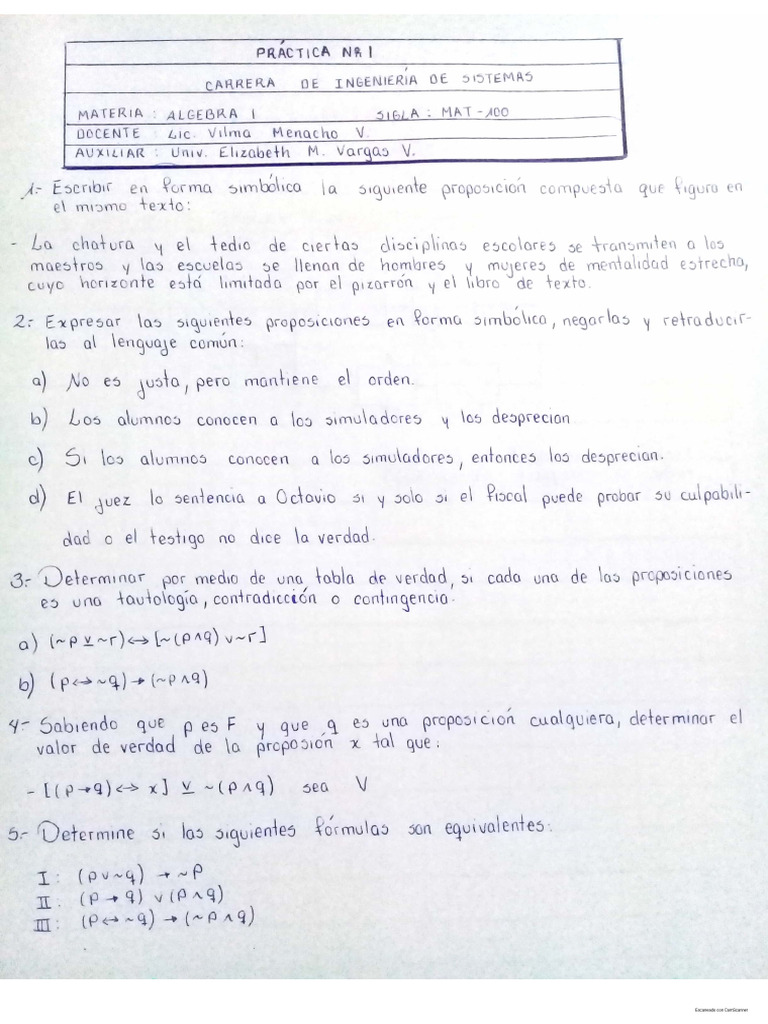 PRÁCTICA Nº 1
CARRERA DE INGENIERÍA DE SISTEMAS
MATERIA : ALGEBRA I SIGLA : MAT-100
DOCENTE : Lic. Vilma Menacho V.
AUXILIAR : Univ. Elizabeth M. Vargas V.
1.- Escribir en forma simbólica la siguiente proposición compuesta que figura en
el mismo texto:
- La chatura y el tedio de ciertas disciplinas escolares se transmiten a los
maestros y las escuelas se llenan de hombres y mujeres de mentalidad estrecha,
cuyo horizonte está limitada por el pizarrón y el libro de texto.
2.- Expresar las siguientes proposiciones en forma simbólica, negarlas y retraducir-
las al lenguaje común:
a) No es justa, pero mantiene el orden.
b) Los alumnos conocen a los simuladores y los desprecian
c) Si los alumnos conocen a los simuladores, entonces los desprecian.
d) El juez lo sentencia a Octavio si y solo si el fiscal puede probar su culpabili-
dad o el testigo no dice la verdad.
3.- Determinar por medio de una tabla de verdad, si cada una de las proposiciones
es una tautología, contradicción o contingencia.
a) (~p v ~r) ↔ [~(p ∧ q) v ~r]
b) (p ↔ ~q) → (~p ∧ q)
4.- Sabiendo que p es F y que q es una proposición cualquiera, determinar el
valor de verdad de la proposión x tal que:
- [(p → q) ↔ x] v ~(p ∧ q) sea V
5.- Determine si las siguientes fórmulas son equivalentes:
I : (p v ~q) → ~p
II : (p → q) v (p ∧ q)
III : (p ↔ ~q) → (~p ∧ q)
Escaneado con CamScanner